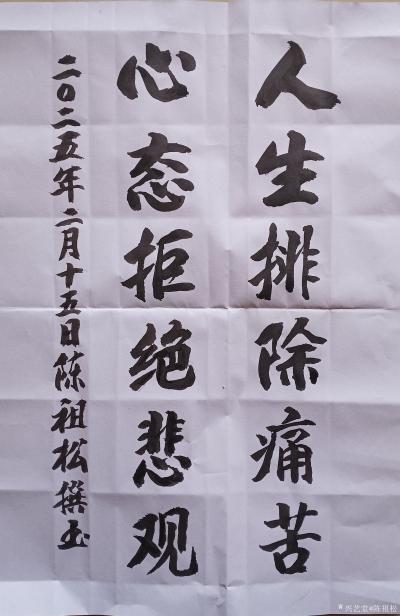 人生排除痛苦
心态拒绝悲观
二〇二五年二月十五日陈祖松撰书
兴艺堂@陈祖松